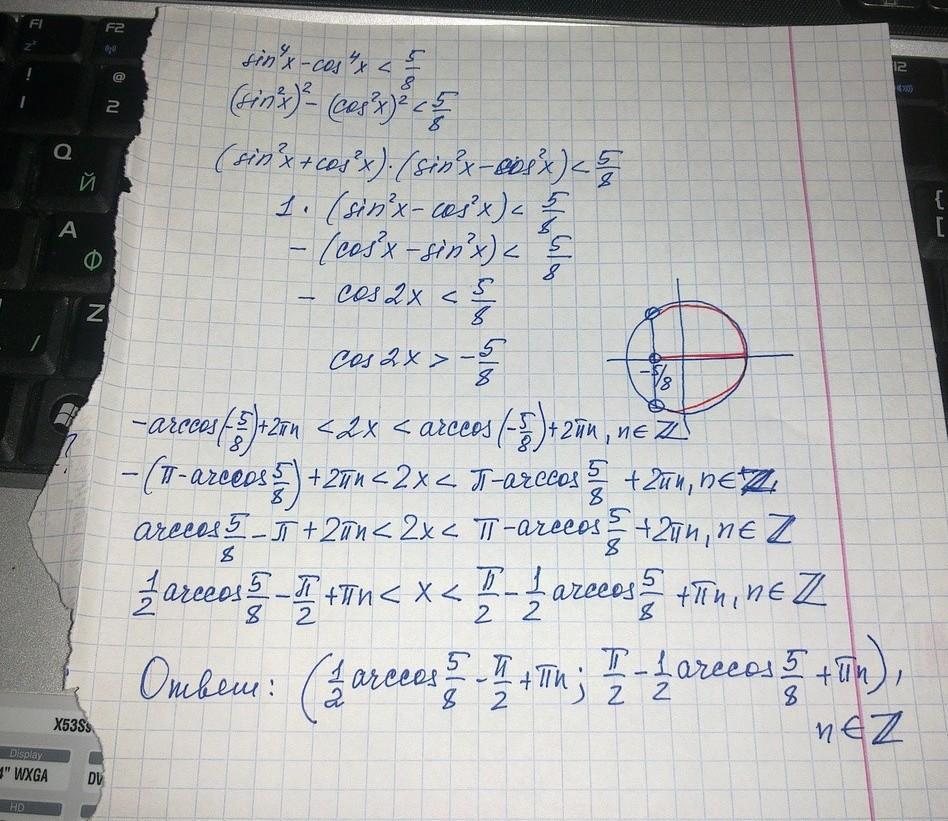 F1
F2
!
1
@
2
Q
Й
A
Ф
Z
/
{
[
sin⁴x - cos⁴x < 5/8
(sin²x)² - (cos²x)² < 5/8
(sin²x + cos²x) · (sin²x - cos²x) < 5/8
1 · (sin²x - cos²x) < 5/8
- (cos²x - sin²x) < 5/8
- cos2x < 5/8
cos2x > -5/8
-5/8
-arccos(-5/8)+2πn < 2x < arccos(-5/8)+2πn, n∈ℤ
-(π-arccos5/8)+2πn < 2x < π-arccos5/8 +2πn, n∈ℤ
arccos5/8 - π + 2πn < 2x < π-arccos5/8 +2πn, n∈ℤ
1/2 arccos5/8 - π/2 + πn < x < π/2 - 1/2 arccos5/8 + πn, n∈ℤ
Ответ: (1/2 arccos5/8 - π/2 + πn; π/2 - 1/2 arccos5/8 + πn),
n∈ℤ
Display
4" WXGA
DV
HD